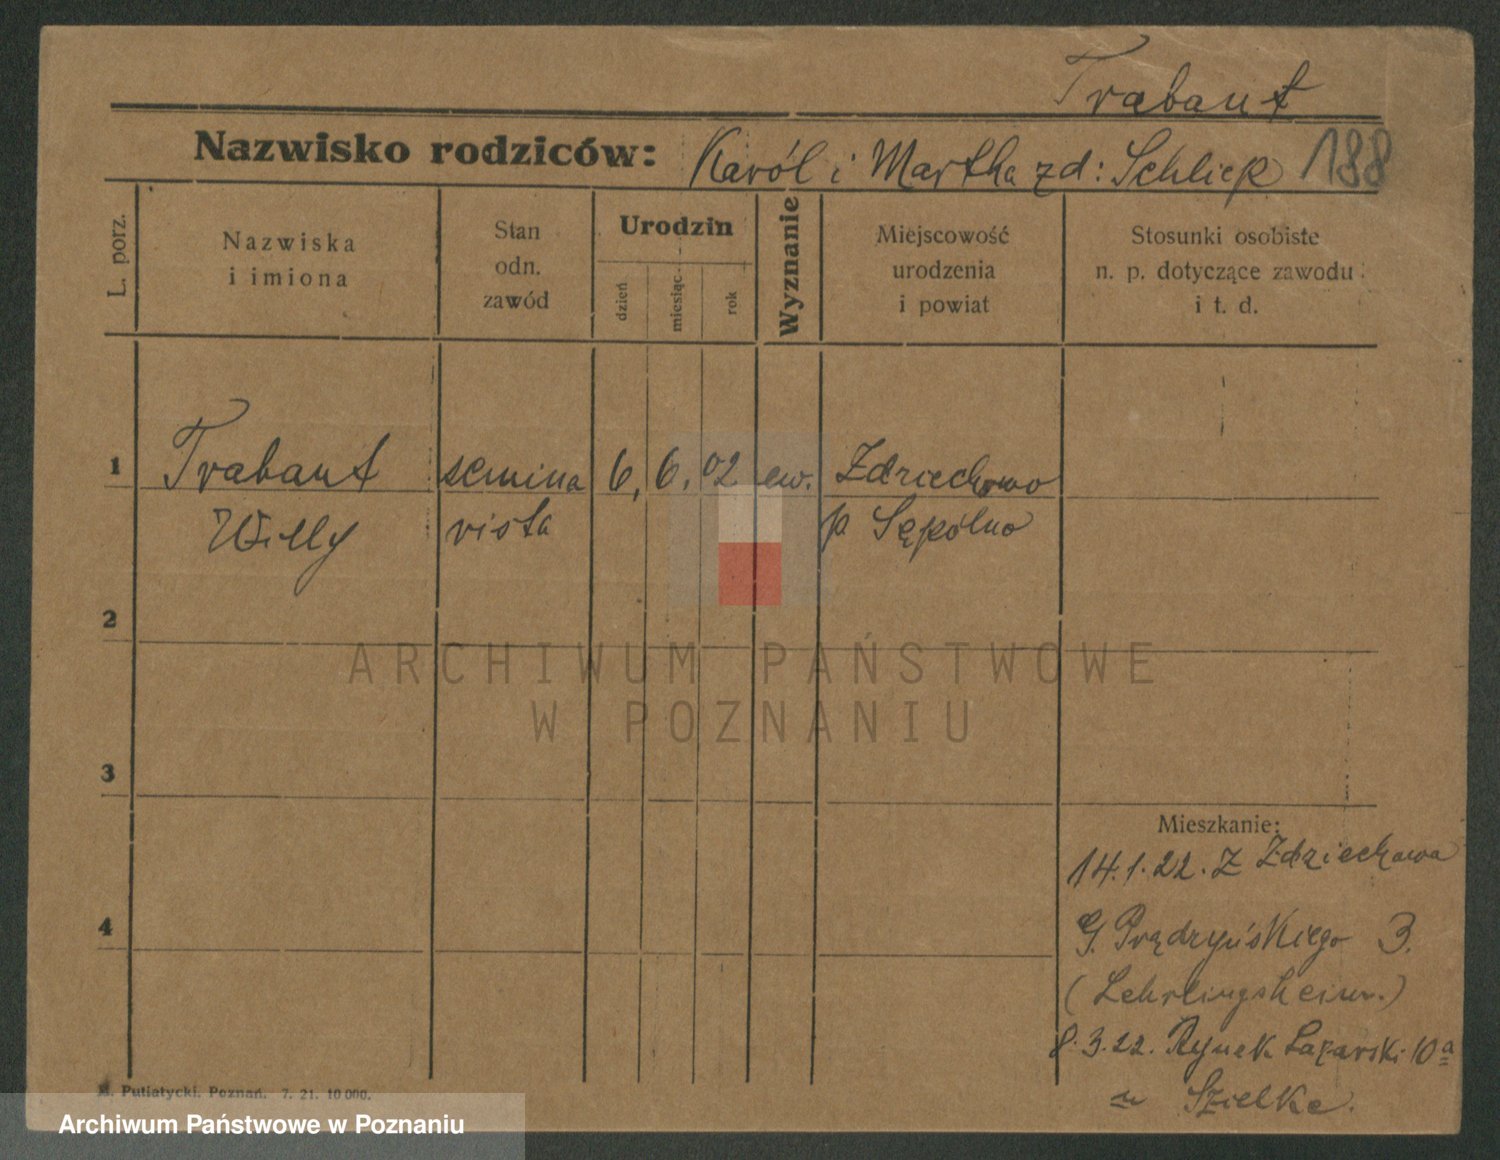 Trabant
Nazwisko rodziców: Karól i Martha zd: Schliep 188
L. porz.
Nazwiska
i imiona
Stan
odn.
zawód
Urodzin
dzień
miesiąc
rok
Wyznanie
Miejscowość
urodzenia
i powiat
Stosunki osobiste
n. p. dotyczące zawodu
i t. d.
1 Trabant semina 6. 6. 02 ew. Zdziechowo
Willy vista p Sępólno
2
ARCHIWUM PAŃSTWOWE
W POZNANIU
3
Mieszkanie:
14.1.22. Z Zdziechowa
4
G. Prądzyńskiego 3.
(Lehrlingsheim.)
8.3.22. Rynek Łazarski 10a
u Szielke.
Putiatycki. Poznań. 7. 21. 10 000.
Archiwum Państwowe w Poznaniu